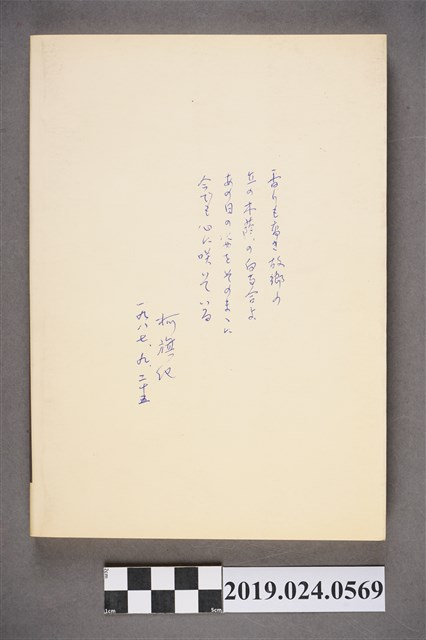 香りも高き故郷の
丘の木蔭の白百合よ
あの日の姿をそのまゝに
今でも心に咲いている
柯旗化
一九八七、九、二十五
2cm
1cm
5cm
2019.024.0569